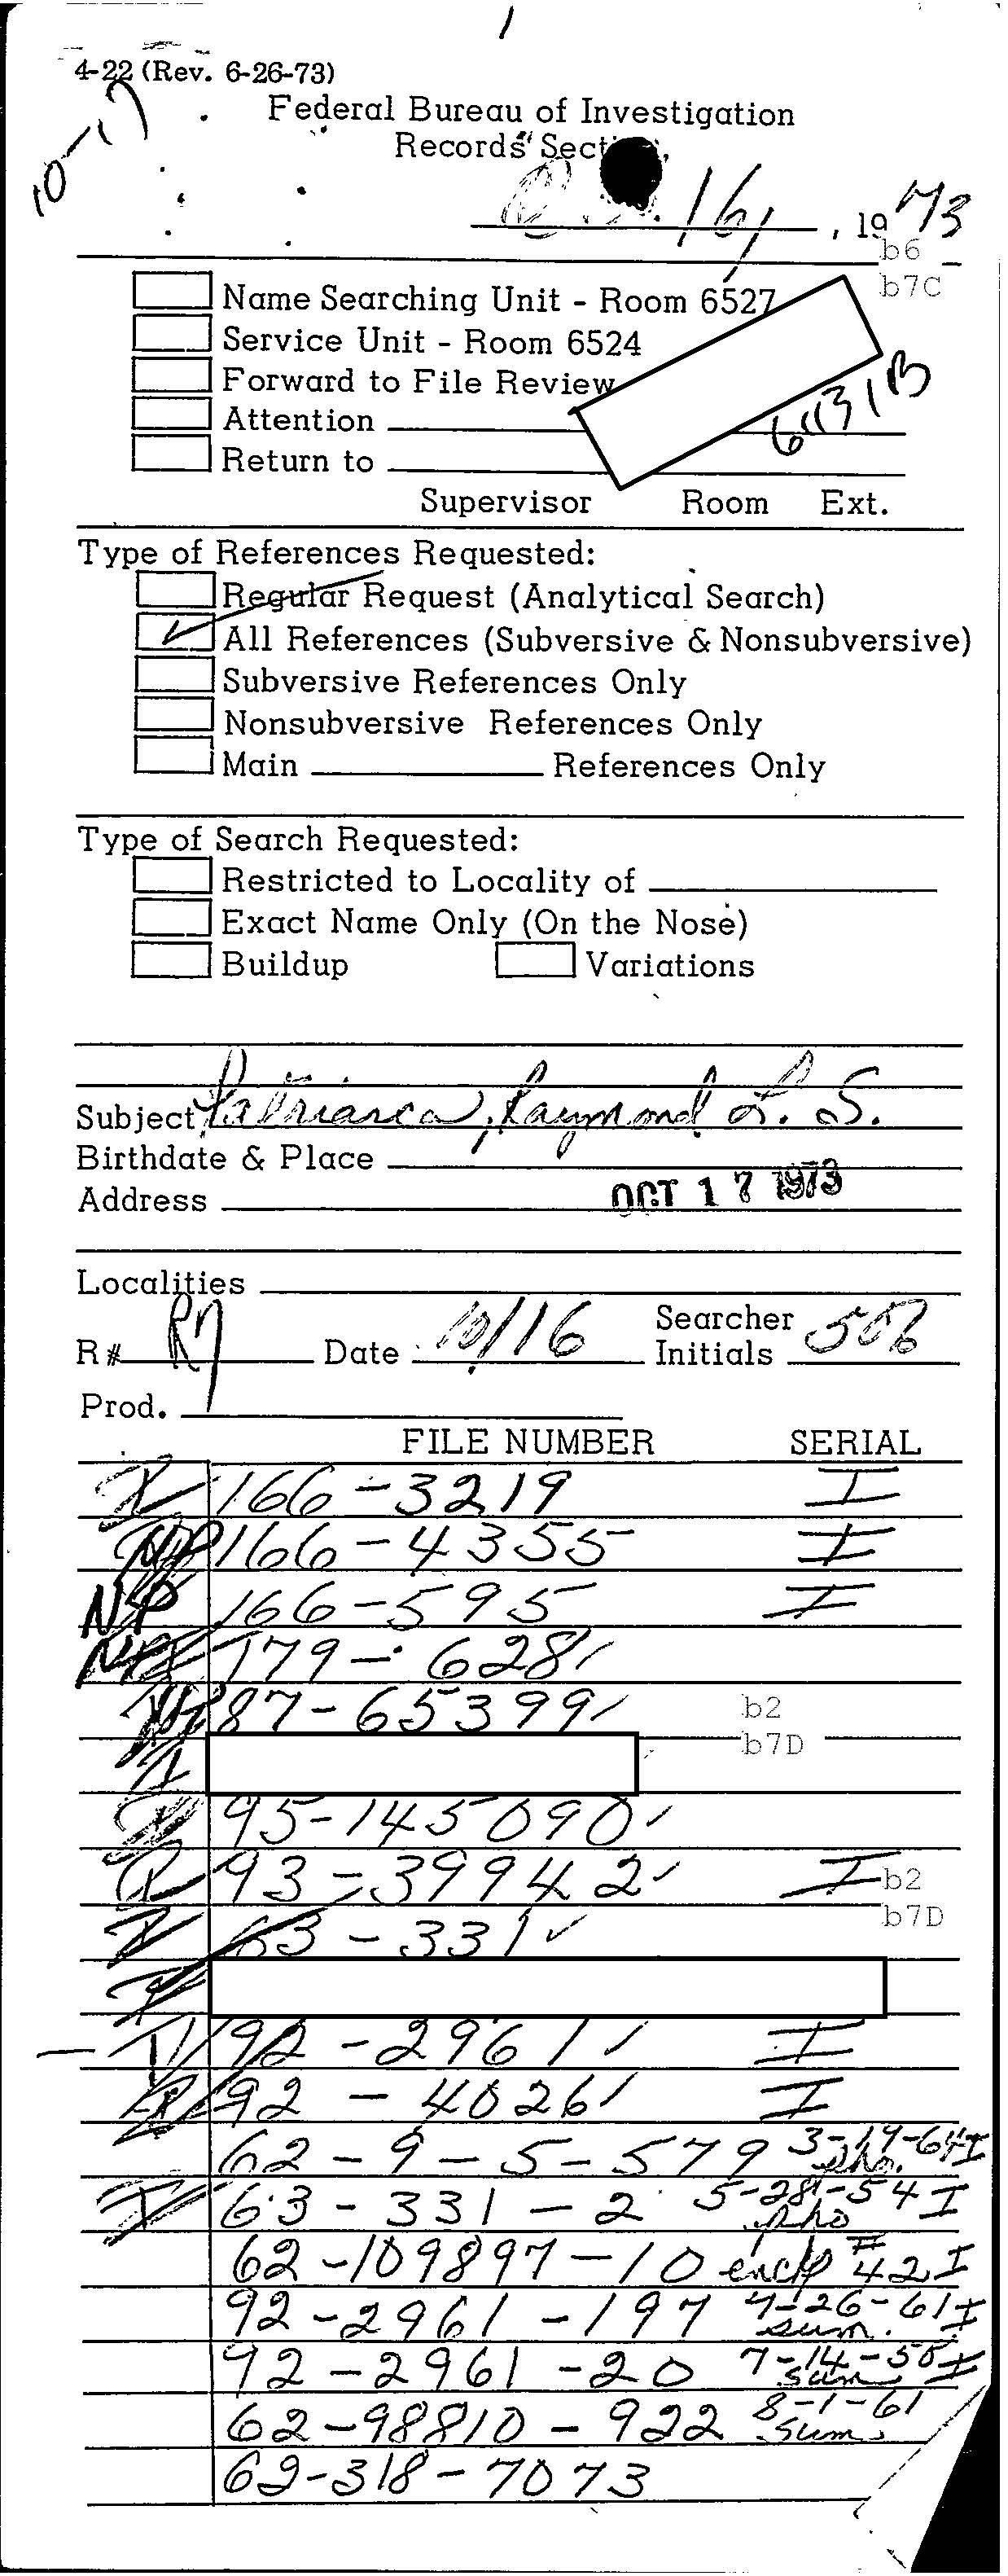 1
4-22 (Rev. 6-26-73)
10-17
Federal Bureau of Investigation
Records Section
16, 1973
b6
b7C
Name Searching Unit - Room 6527
Service Unit - Room 6524
Forward to File Review
Attention
6431B
Return to
Supervisor Room Ext.
Type of References Requested:
Regular Request (Analytical Search)
All References (Subversive & Nonsubversive)
Subversive References Only
Nonsubversive References Only
Main References Only
Type of Search Requested:
Restricted to Locality of
Exact Name Only (On the Nose)
Buildup Variations
Subject Patriarca, Raymond L. S.
Birthdate & Place
Address OCT 17 1973
Localities
R# Date 10/16 Searcher Initials
Prod.
FILE NUMBER SERIAL
166-3219 I
166-4355 I
NP 166-595 I
179-628
87-65399 b2
b7D
95-145090
93-39942 I b2
b7D
63-331
92-2961 I
92-4026 I
62-9-5-579 3-19-64 I
63-331-2 5-28-54 I
62-109897-10 encl #42 I
92-2961-197 4-26-61 I sum.
92-2961-20 7-14-58 I sum
62-98810-922 8-1-61 sum
62-318-7073